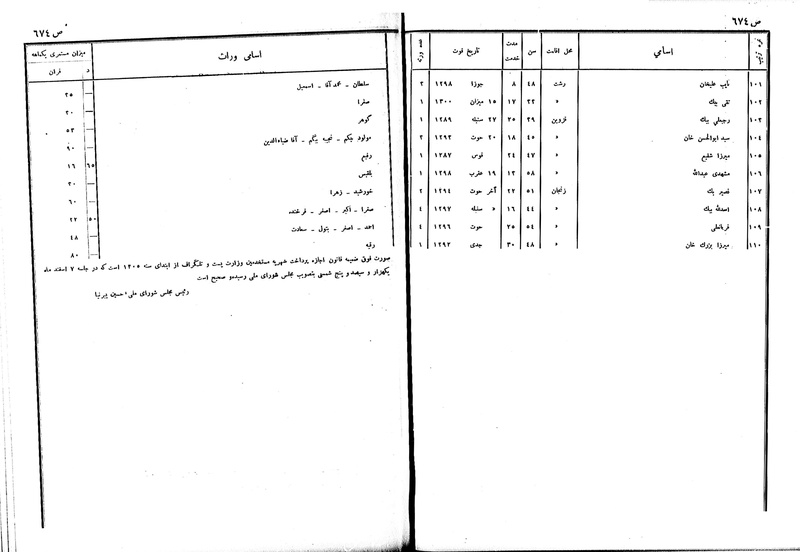 ص ٦٧٤
نمره ترتیب اسامی محل اقامت سن مدت خدمت تاریخ فوت عده ورثه
١٠١ نایب علیخان رشت ٤٨ ٨ جوزا ١٢٩٨ ٣
١٠٢ تقی بیك » ٣٣ ١٧ ١٥ میزان ١٣٠٠ ١
١٠٣ رجبعلی بیك قزوین ٣٩ ٢٥ ٢٧ سنبله ١٢٨٩ ١
١٠٤ سید ابوالحسن خان » ٤٥ ١٨ ٢٠ حوت ١٢٩٣ ٣
١٠٥ میرزا شفیع » ٤٧ ٢٤ قوس ١٢٨٧ ١
١٠٦ مشهدی عبدالله » ٥٨ ١٣ ١٩ عقرب ١٢٩٨ ١
١٠٧ نصیر بك زنجان ٥١ ٢٢ آخر حوت ١٢٩٤ ٢
١٠٨ اسدالله بیك » ٤٤ ١٦ » سنبله ١٢٩٧ ٤
١٠٩ قربانعلی » ٥٤ ٢٥ حوت ١٢٩٦ ٤
١١٠ میرزا بزرك خان » ٤٨ ٣٠ جدی ١٢٩٢ ١
ص ٦٧٤
اسامی وراث میزان مستمری یکماهه
د قران
سلطان ـ محمد آقا ـ اسمعیل — ٢٥
صغرا — ٢٠
گوهر — ٥٣
مولود بیگم ـ نجیبه بیگم ـ آقا ضیاءالدین — ٩٠
رقیم ٦٥ ١٦
بلقیس — ٣٠
خورشید ـ زهرا — ٦٠
صغرا ـ اکبر ـ اصغر ـ فرخنده ٥٠ ٢٢
احمد ـ اصغر ـ بتول ـ سعادت — ٤٨
رقیه — ٨٠
صورت فوق ضمیمه قانون اجازه پرداخت شهریه مستخدمین وزارت پست و تلگراف از ابتدای سنه ١٣٠٥ است که در جلسه ٧ اسفند ماه
یکهزار و سیصد و پنج شمسی بتصویب مجلس شورای ملی رسیده و صحیح است
رئیس مجلس شورای ملی ـ حسین پیرنیا